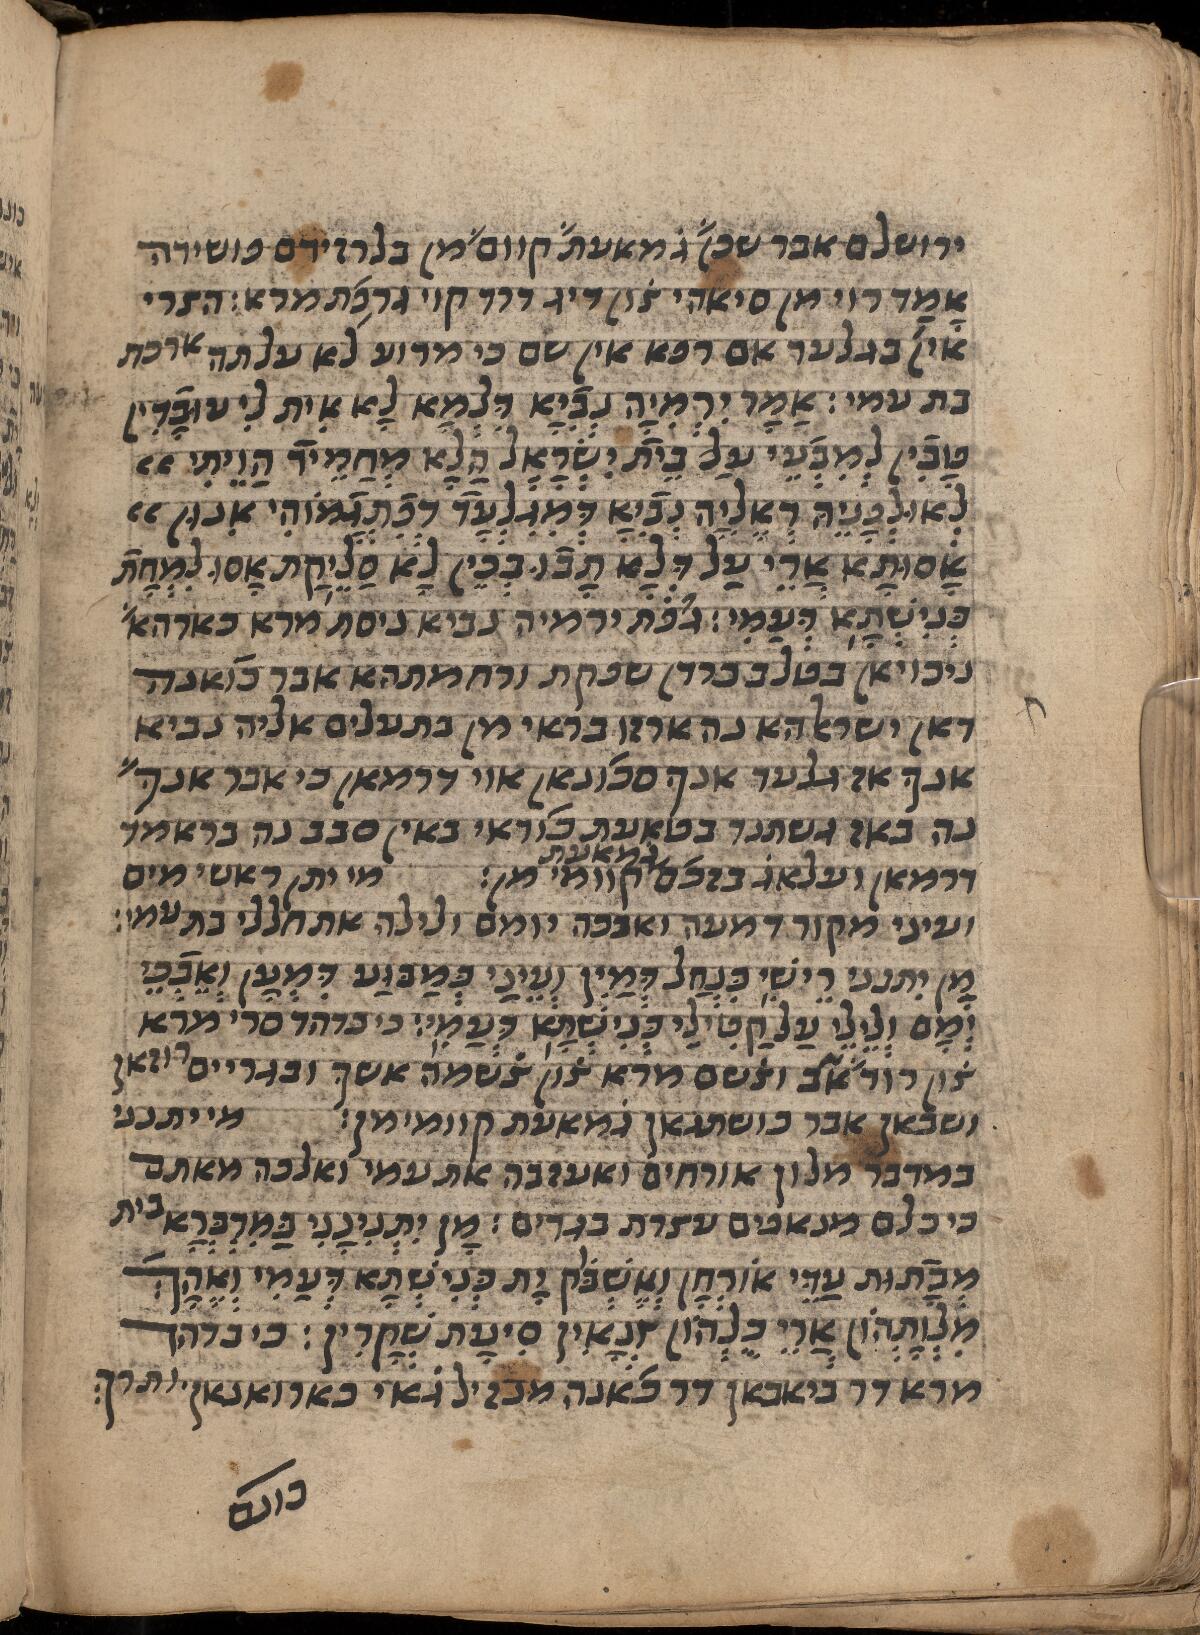 ירושלם אבר שכן גמאעת קוום מן בלרזידם פושידה
אָמַד רוי מן סיאהי צון דיג דרד קוי גרפת מרא: הצרי
אין בגלעד אם רפא אין שם כי מדוע לא עלתה ארכת
בת עמי: אֲמַר יִרְמִיָה נְבִיָא הִלְמָא לָא אִית לִי עוּבָדִין
טָבִין לְמִבְעֵי עַל בֵּית יִשְׂרָאֵל הַלָא מְחַמֵיד הֲוֵיתִי
לְאוּלְפָנֵיהּ דְאֵלִיָה נְבִיָא דְמִגִלְעָד דְפִתְגָמוֹהִי אִנוּן
אָסוּתָא אֲרֵי עַל דְלָא תָבוּ בְכֵין לָא סַלֵיקַת אָסוּ לְמִחַת
כְּנִישְׁתָּא דְעַמִי: גפת ירמיה נביא ניסת מרא כארהא
ניכויאן בטלב כרדן שפקת ורחמתהא אבר כואנה
דאן ישראלהא נה ארזו בראי מן בתעלים אליה נביא
אנך אז גלעד אנך סכונאן אוי דרמאן כי אבר אנך
נה באז גשתנד בטאעת כוראי באין סבב נה בראמד
דרמאן ועלאג בזכם גמאעת קוומי מן: מי יתן ראשי מים
ועיני מקור דמעה ואבכה יומם ולילה את חללי בת עמי:
מַן יִתְנִנִי רֵישִׁי כִּנְחַל דְמַיִן וְעֵינַי כְּמַבּוּעַ דִמְעָן וְאֶבְכֵּי
יְמָם וְלֵילֵי עַל קַטִילֵי כְּנִישְׁתָּא דְעַמִי: כי בדהד סרי מרא
צון רוד אב וצשם מרא צון צשמה אשך ובגריים רוזאן
ושבאן אבר כושתגאן גמאעת קוומי מן: מי יתנני
במדבר מלון אורחים ואעזבה את עמי ואלכה מאתם
כי כלם מנאפים עצרת בגדים: מַן יִתְנִינַנִי בְּמִדְבְּרָא בית
מְבָתוּת עֲדֵי אוֹרְחָן וְאֶשְׁבֹּק יָת כְּנִישְׁתָּא דְעַמִי וְאֶהָךְ
מִלְוָתְהוֹן אֲרֵי כֻלְהוֹן זְנָאִין סִיעַת שַׁקָרִין: כי בדהד
מרא דר ביאבאן דר כאנה מנזיל גאי כארואנאן. ותרך
כונם